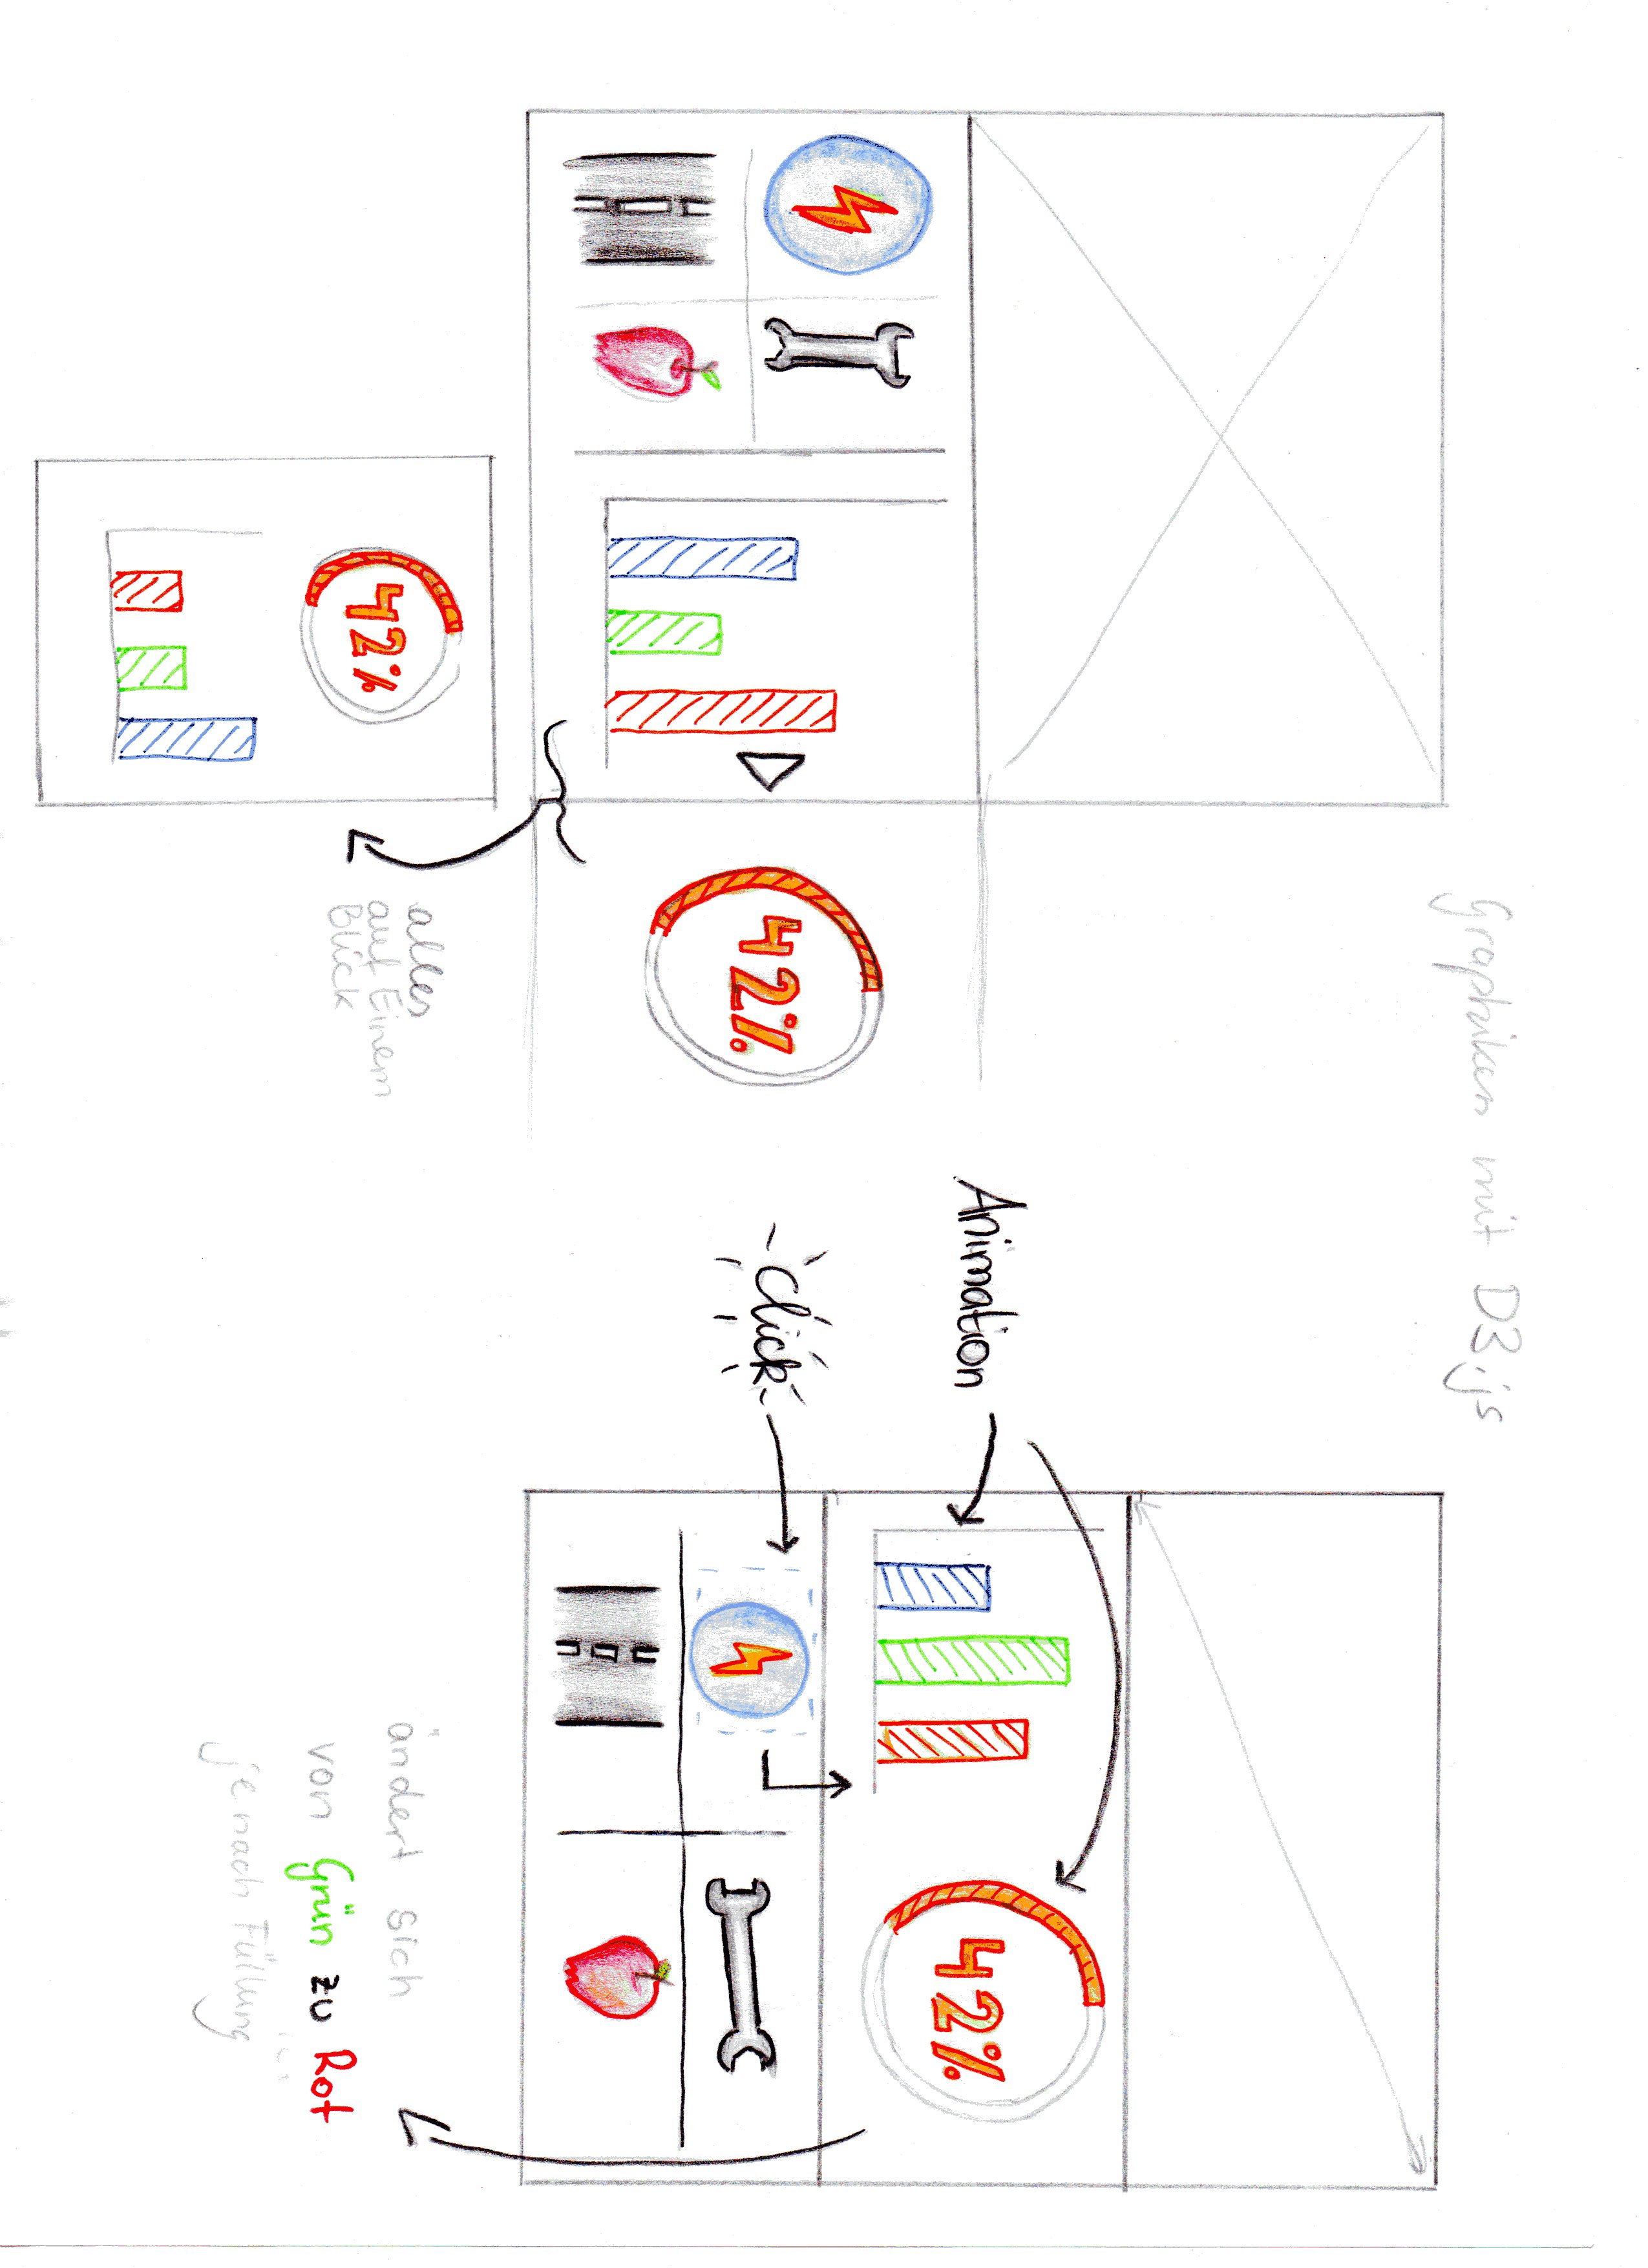 Graphiken mit D3.js
42%
alles
auf Einem
Blick
42%
Animation
Click
42%
ändert sich
von Grün zu Rot
je nach Füllung